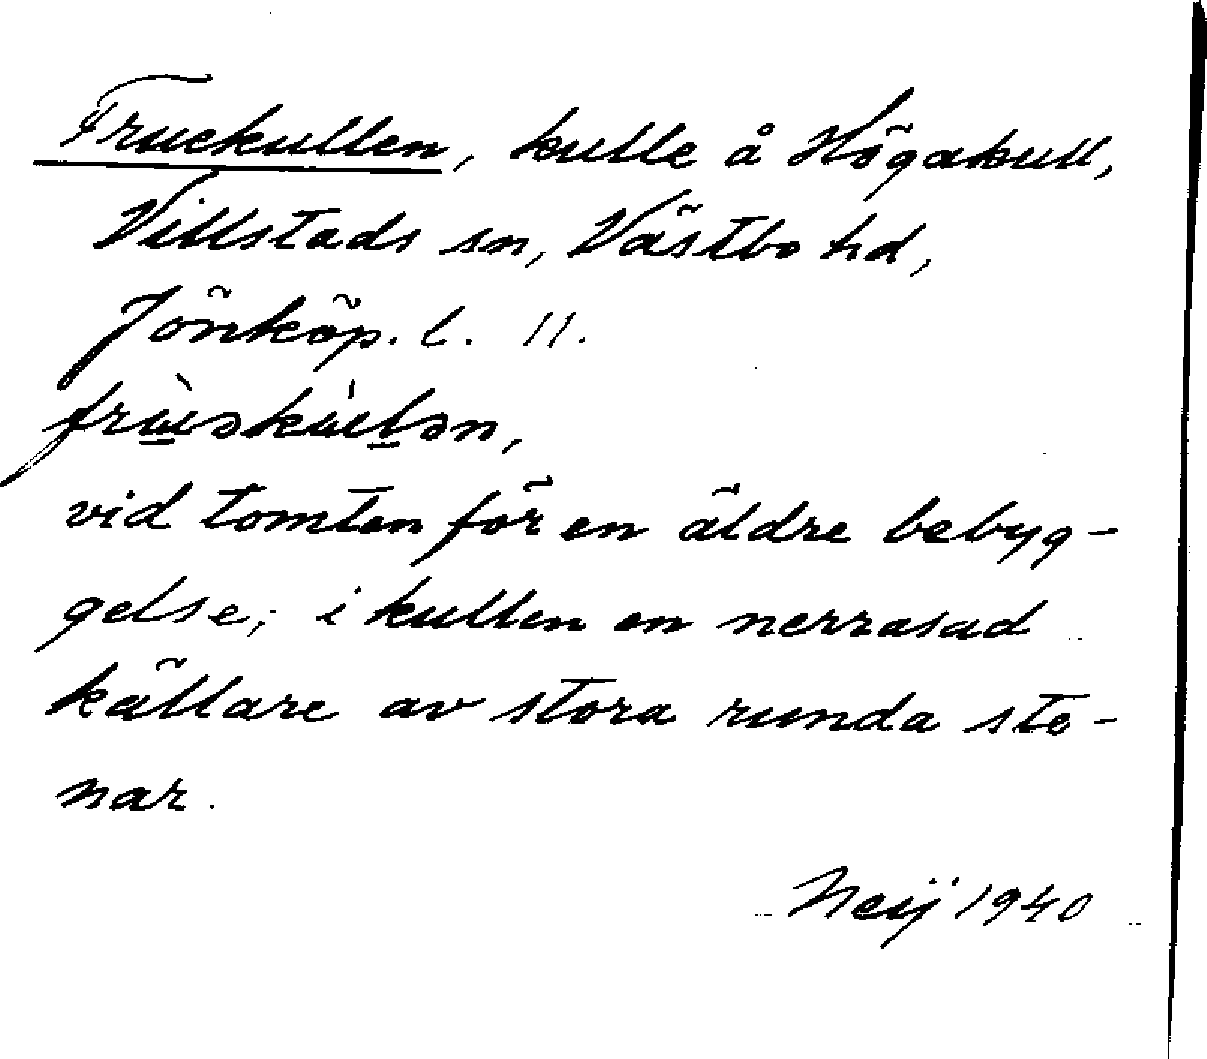 Fruekullen, kulle å Högakull,
Villstads sn, Västbo hd,
Jönköp. l. 11.
frùəkùlən,
vid tomten för en äldre bebyg-
gelse; i kullen en nerrasad
källare av stora runda ste-
nar.
Neij 1940